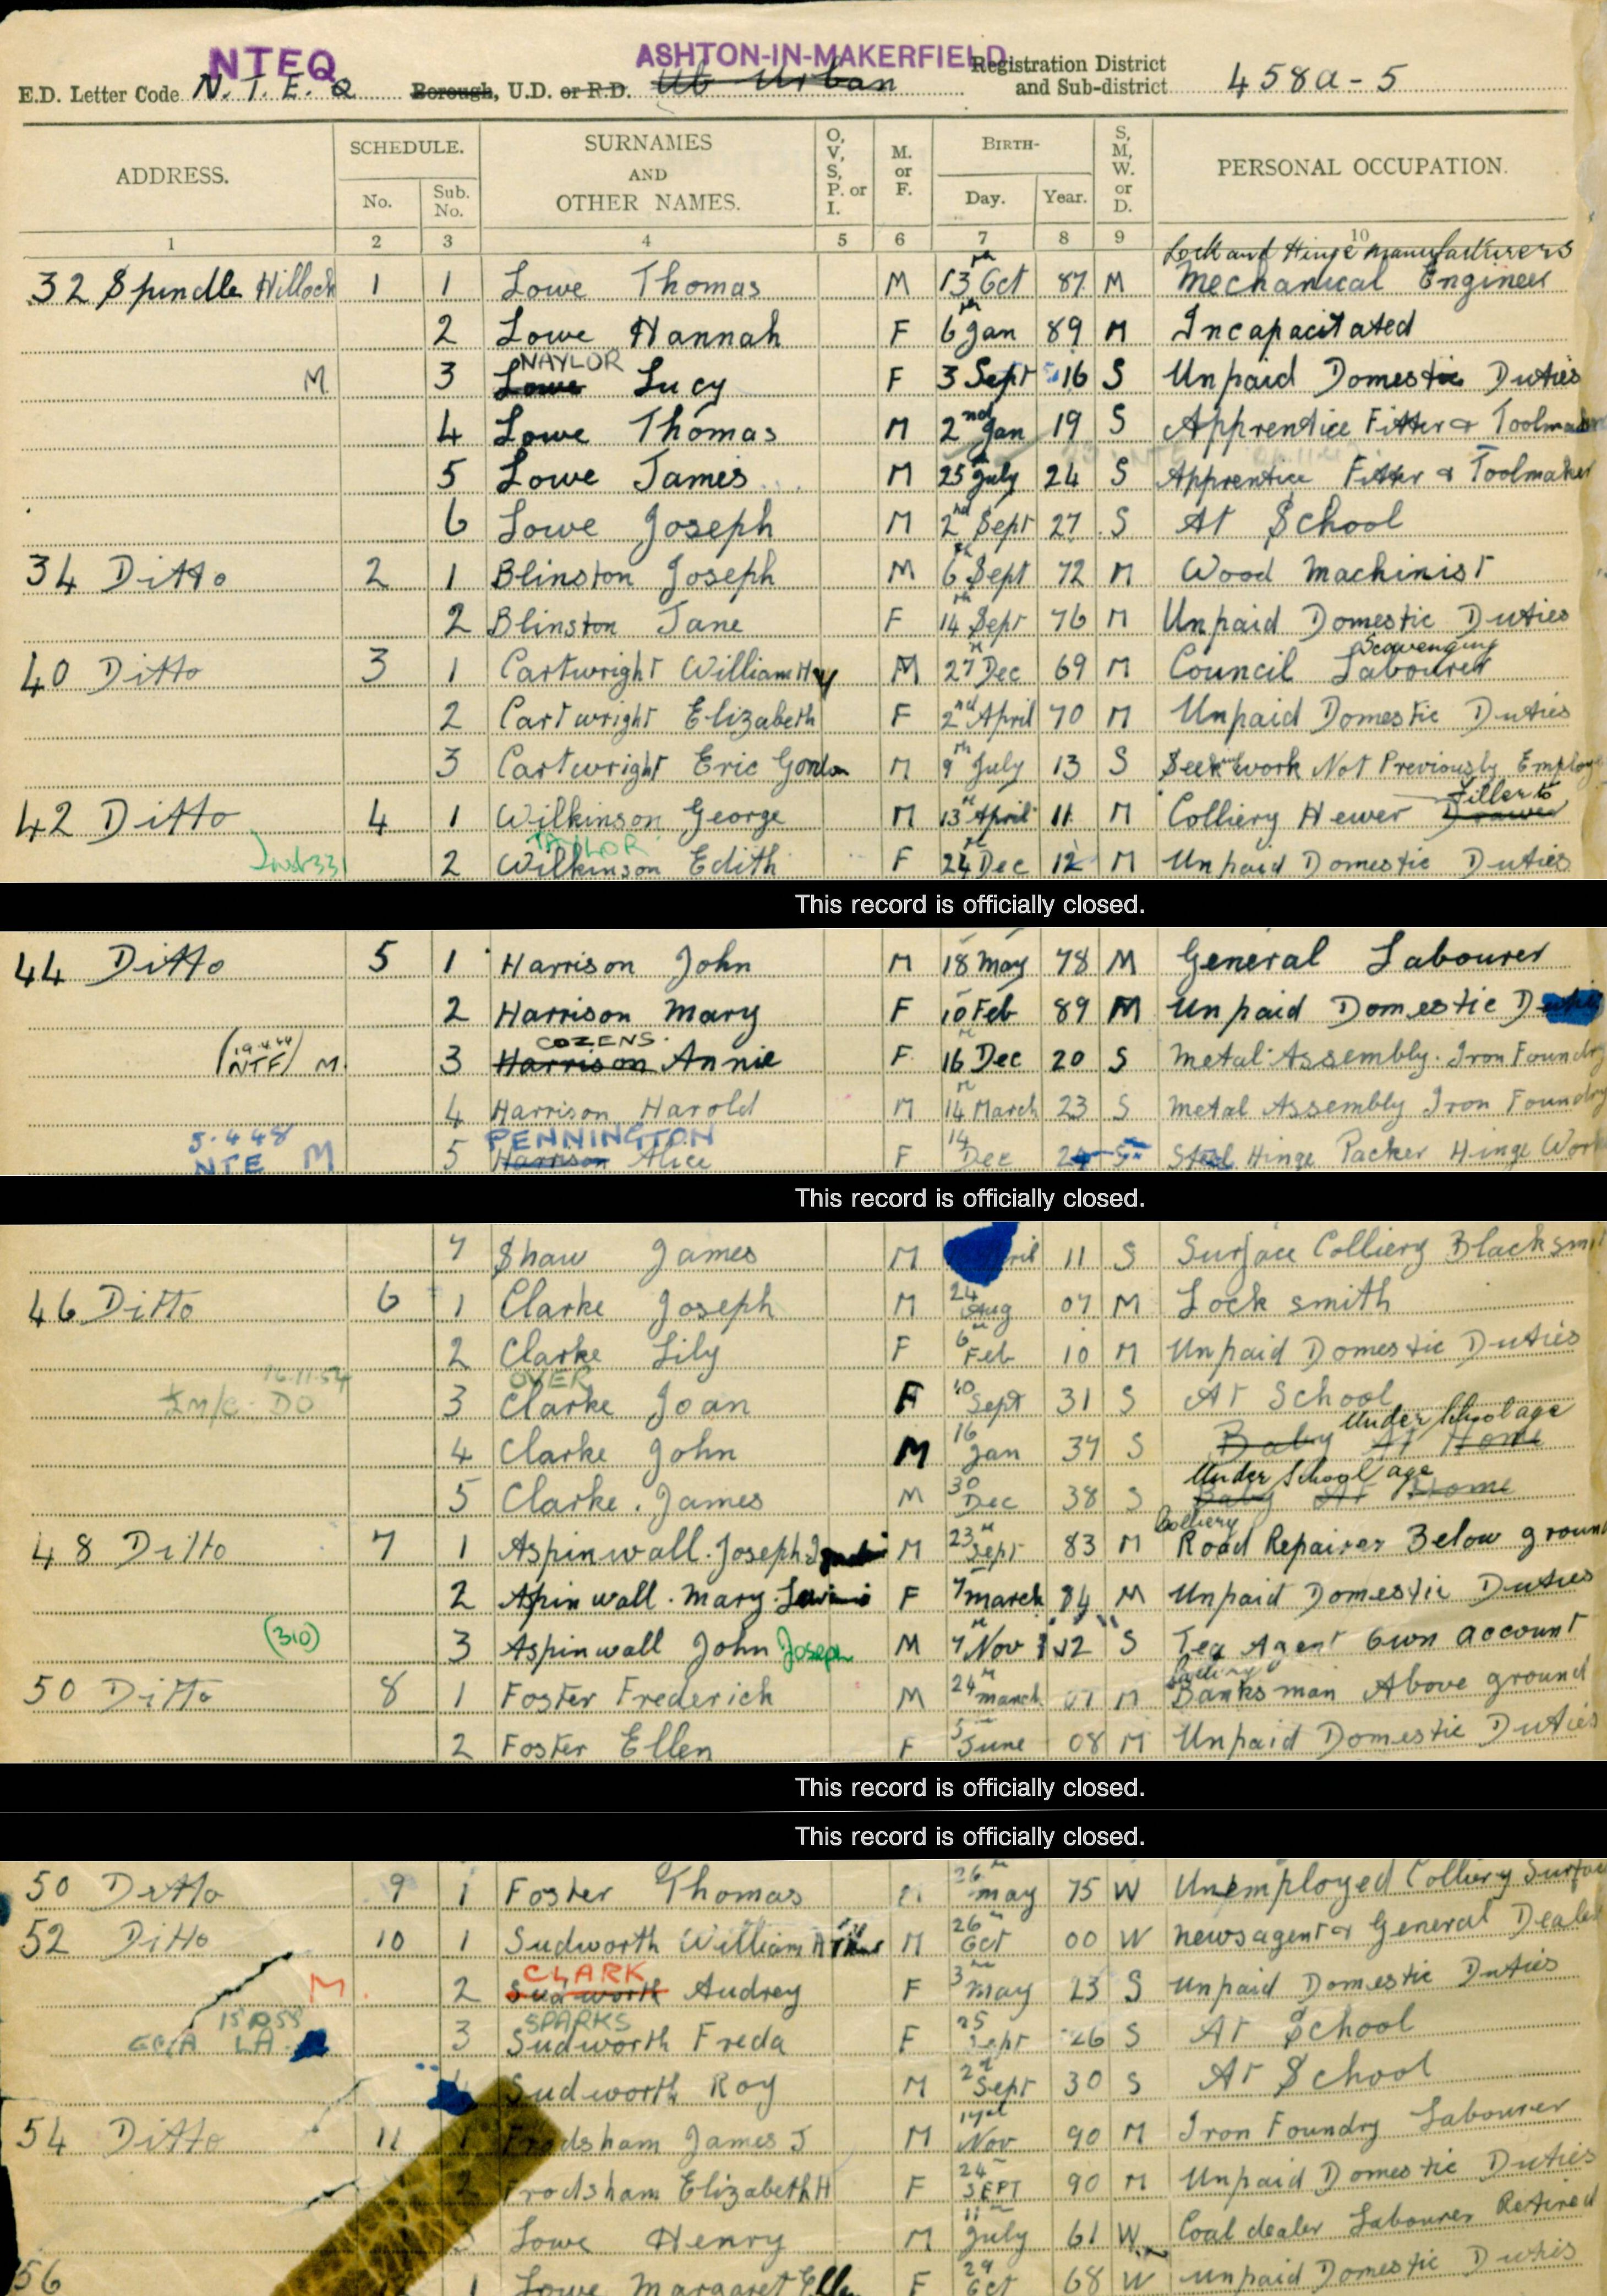 NTEQ ASHTON-IN-MAKERFIELD
E.D. Letter Code N. T. E. Q Borough, U.D. or R.D. Urban Registration District and Sub-district 458a-5
ADDRESS. SCHEDULE. No. Sub. No. SURNAMES AND OTHER NAMES. O, V, S, P. or I. M. or F. BIRTH- Day. Year. S, M, W. or D. PERSONAL OCCUPATION.
1 2 3 4 5 6 7 8 9 10
Lock and Hinge Manufacturers
32 Spindle Hillock 1 1 Lowe Thomas M 13th Oct 87 M Mechanical Engineer
2 Lowe Hannah F 6th Jan 89 M Incapacitated
NAYLOR
M 3 Lowe Lucy F 3 Sept 16 S Unpaid Domestic Duties
4 Lowe Thomas M 2nd Jan 19 S Apprentice Fitter & Toolmaker
5 Lowe James M 25th July 24 S Apprentice Fitter & Toolmaker
6 Lowe Joseph M 2nd Sept 27 S At School
34 Ditto 2 1 Blinston Joseph M 6th Sept 72 M Wood Machinist
2 Blinston Jane F 14th Sept 76 M Unpaid Domestic Duties
Scavenging
40 Ditto 3 1 Cartwright William Hy M 27th Dec 69 M Council Labourer
2 Cartwright Elizabeth F 2nd April 70 M Unpaid Domestic Duties
3 Cartwright Eric Gordon M 9th July 13 S Seek work Not Previously Employ
Filler to
42 Ditto 4 1 Wilkinson George M 13th April 11 M Colliery Hewer Drawer
TAYLOR
2 Wilkinson Edith F 24th Dec 12 M Unpaid Domestic Duties
This record is officially closed.
44 Ditto 5 1 Harrison John M 18 May 78 M General Labourer
2 Harrison Mary F 10 Feb 89 M Unpaid Domestic Duties
COZENS.
19.4.44 NTF M. 3 Harrison Annie F 16th Dec 20 S Metal Assembly. Iron Foundry
4 Harrison Harold M 14th March 23 S Metal Assembly Iron Foundry
5.4.48 PENNINGTON
NTE M 5 Harrison Alice F 14 Dec 24 S Steel Hinge Packer Hinge Work
This record is officially closed.
7 Shaw James M April 11 S Surface Colliery Blacksmi
46 Ditto 6 1 Clarke Joseph M 24 Aug 07 M Lock smith
2 Clarke Lily F 6th Feb 10 M Unpaid Domestic Duties
16.11.54 OVER
DO 3 Clarke Joan F 10 Sept 31 S At School
Under School age
4 Clarke John M 16 Jan 37 S Baby At Home
Under School age
5 Clarke. James M 30 Dec 38 S Baby At Home
Colliery
48 Ditto 7 1 Aspinwall. Joseph M 23rd Sept 83 M Road Repairer Below ground
2 Aspinwall. Mary. F 7 March 84 M Unpaid Domestic Duties
(310) 3 Aspinwall John Joseph M 7th Nov 12 S Tea Agent Own account
50 Ditto 8 1 Foster Frederick M 24th March 07 M Banksman Above ground
2 Foster Ellen F 5 June 08 M Unpaid Domestic Duties
This record is officially closed.
This record is officially closed.
50 Ditto 9 1 Foster Thomas 26th May 75 W Unemployed Colliery Surface
52 Ditto 10 1 Sudworth William Arthur M 26th Oct 00 W Newsagent & General Dealer
CLARK
M. 2 Sudworth Audrey F 3rd May 23 S Unpaid Domestic Duties
SPARKS
LA 3 Sudworth Freda F 25 Sept 26 S At School
Sudworth Roy M 2nd Sept 30 S At School
54 Ditto 11 1 Frodsham James J M Nov 90 M Iron Foundry Labourer
2 Frodsham Elizabeth H F 24 SEPT 90 M Unpaid Domestic Duties
Lowe Henry M 11th July 61 W Coal dealer Labourer Retired
56 1 Lowe Margaret Ellen F 29 Oct 68 W Unpaid Domestic Duties